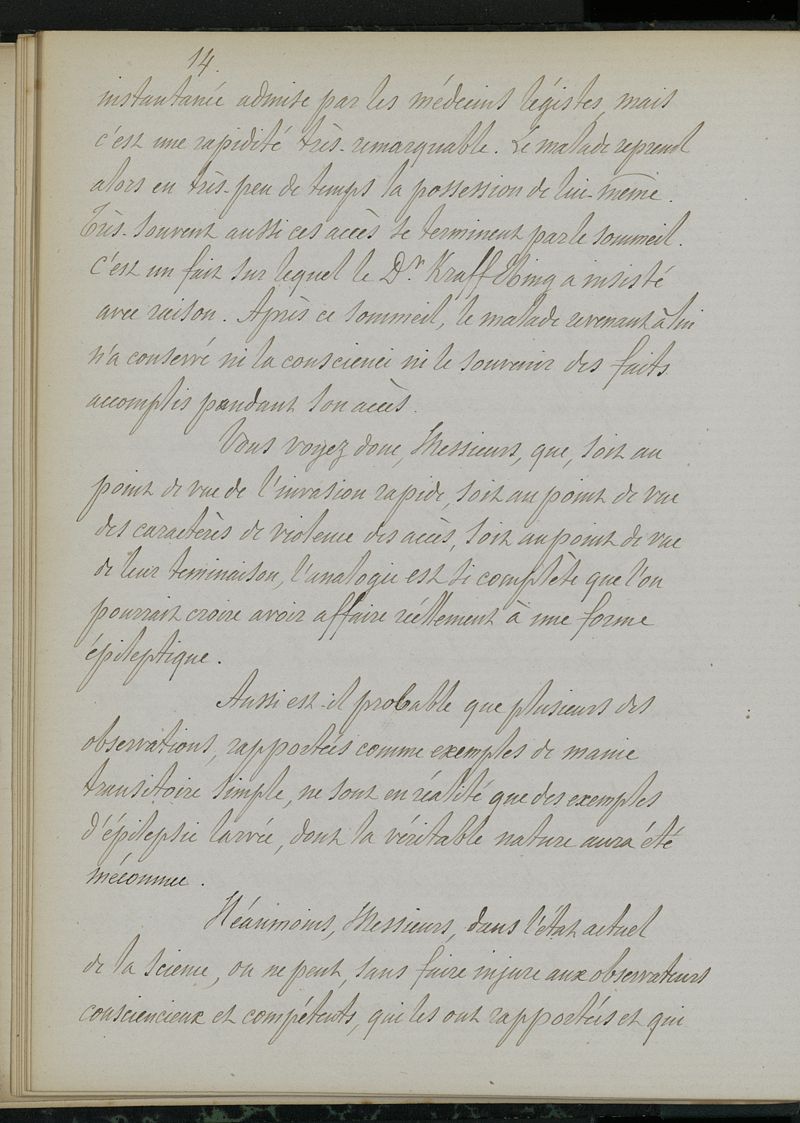 14.
instantanée admise par les médecins légistes, mais
c'est une rapidité très-remarquable. Le malade reprend
alors en très-peu de temps la possession de lui-même.
Très-souvent aussi ces accès se terminent par le sommeil.
C'est un fait sur lequel le Dr. Krafft Ebing a insisté
avec raison. Après ce sommeil, le malade revenant à lui
n'a conservé ni la conscience ni le souvenir des faits
accomplis pendant son accès.
Vous voyez donc, Messieurs, que, soit au
point de vue de l'invasion rapide, soit au point de vue
des caractères de violence des accès, soit au point de vue
de leur teminaison, l'analogie est si complète que l'on
pourrait croire avoir affaire réellement à une forme
épileptique.
Aussi est-il probable que plusieurs des
observations, rapportées comme exemples de manie
transitoire simple, ne sont en réalité que des exemples
d'épilepsie larvée, dont la véritable nature aura été
méconnue.
Néanmoins, Messieurs, dans l'état actuel
de la science, on ne peut, sans faire injure aux observateurs
consciencieux et compétents, qui les ont rapportés et qui